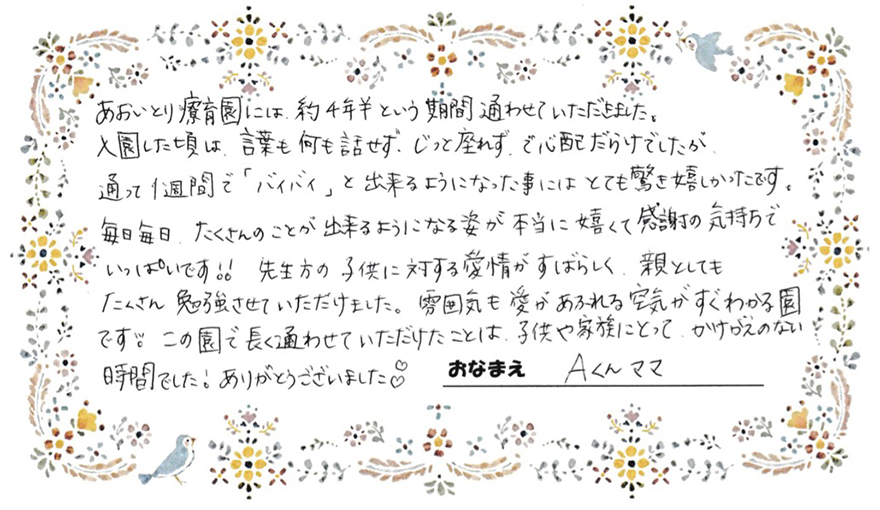 あおいとり療育園には、約4年半という期間通わせていただきました。
入園した頃は、言葉も何も話せず、じっと座れず、で心配だらけでしたが、
通って1週間で「バイバイ」と出来るようになった事にはとても驚き嬉しかったです。
毎日毎日、たくさんのことが出来るようになる姿が本当に嬉しくて感謝の気持ちで
いっぱいです!! 先生方の子供に対する愛情がすばらしく、親としても
たくさん勉強させていただけました。雰囲気も愛があふれる空気がすぐわかる園
です!! この園で長く通わせていただけたことは、子供や家族にとって、かけがえのない
時間でした! ありがとうございました♡♡
おなまえ Aくんママ